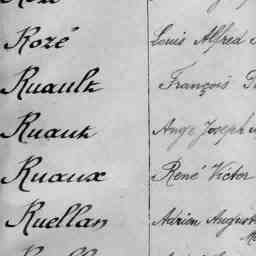 Rozé Louis Alfred
Ruault François
Ruaux Ange Joseph
Ruaux René Victor
Ruellan Adrien Auguste